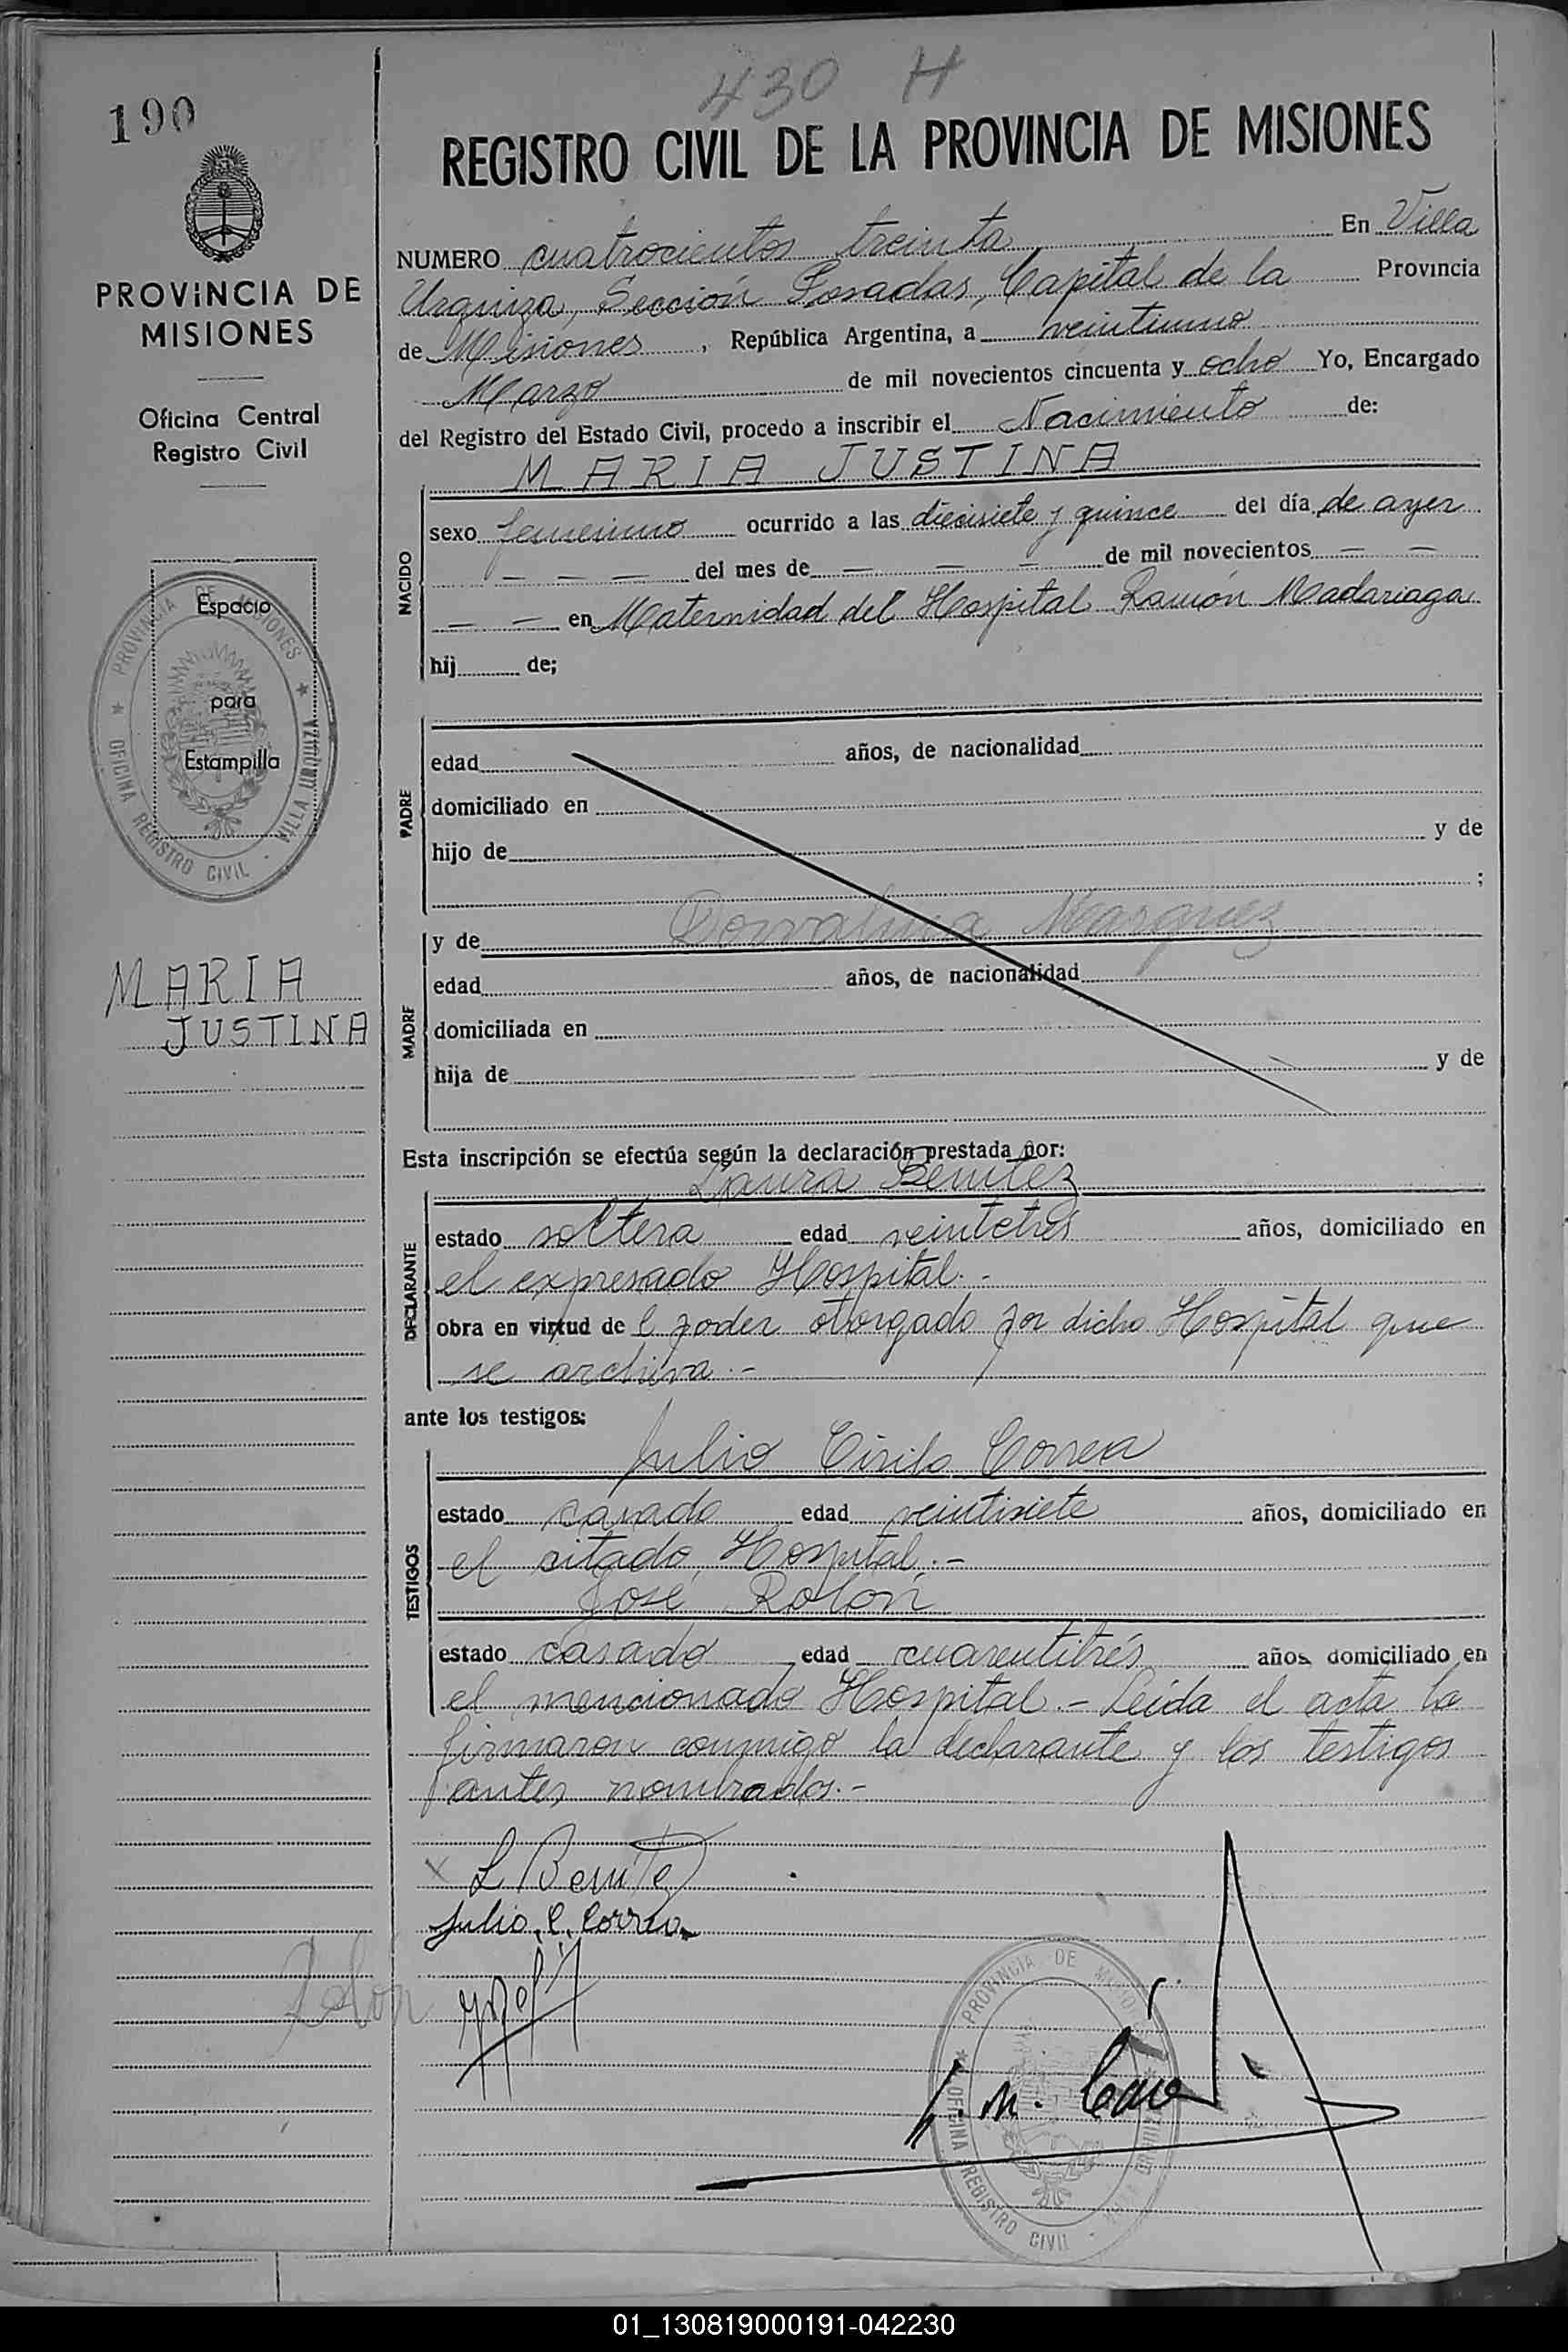 430 H
190
REGISTRO CIVIL DE LA PROVINCIA DE MISIONES
PROVINCIA DE
MISIONES
Oficina Central
Registro Civil
Espacio
para
Estampilla
PROVINCIA DE MISIONES
OFICINA REGISTRO CIVIL - VILLA URQUIZA
MARIA
JUSTINA
NUMERO cuatrocientos treinta En Villa
Urquiza, Sección Posadas, Capital de la Provincia
de Misiones, República Argentina, a veintiuno
Marzo de mil novecientos cincuenta y ocho Yo, Encargado
del Registro del Estado Civil, procedo a inscribir el Nacimiento de:
MARIA JUSTINA
NACIDO
sexo femenino ocurrido a las diecisiete y quince del día de ayer
— — — del mes de — — — de mil novecientos — —
— — en Maternidad del Hospital Ramón Madariaga
hij de;
PADRE
edad años, de nacionalidad
domiciliado en
hijo de y de
;
MADRE
y de Dorvalina Marquez
edad años, de nacionalidad
domiciliada en
hija de y de
Esta inscripción se efectúa según la declaración prestada por:
Laura Benitez
DECLARANTE
estado soltera edad veintetrés años, domiciliado en
el expresado Hospital.-
obra en virtud de l poder otorgado por dicho Hospital que
se archiva.-
ante los testigos:
Julio Cirilo Correa
TESTIGOS
estado casado edad veintisiete años, domiciliado en
el citado Hospital.-
José Rolón
estado casado edad cuarentitrés años domiciliado en
el mencionado Hospital.- Leída el acta la
firmaron conmigo la declarante y los testigos
antes nombrados.-
L Benitez
Julio C. Correa
Rolon
PROVINCIA DE MISIONES
OFICINA REGISTRO CIVIL
01_130819000191-042230